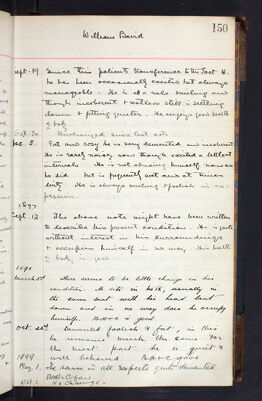 150
William David
Sept. 19. Since this patient's transference to the East H.
he has been occasionally excited but always
manageable. He is as a rule smiling and
though incoherent & restless still is settling
down & getting quieter. He enjoys good health
of body.
Oct. 20. Unchanged since last note.
Dec. 3. Fat and rosy he is very demented and incoherent
He is rarely noisy now though excited at
intervals. He is not abusing himself now as
he did but is frequently wet and at times
dirty. He is always smiling & foolish in
1897
Sept. 12. The above note might have been written
to describe his present condition. He is quite
without interest in his surroundings
& occupies himself in no way. His health
of body is good
1898
March 3rd There seems to be little change in his
condition. He sits in, usually in
the same seat with his head bent
down and in no way does he occupy
himself. good
Oct. Demented foolish & fat, in this
he remains much the same. For
the most part he is quiet &
well behaved. good
1899
May 1. He is in all respects quite demented
Oct 1. No Change